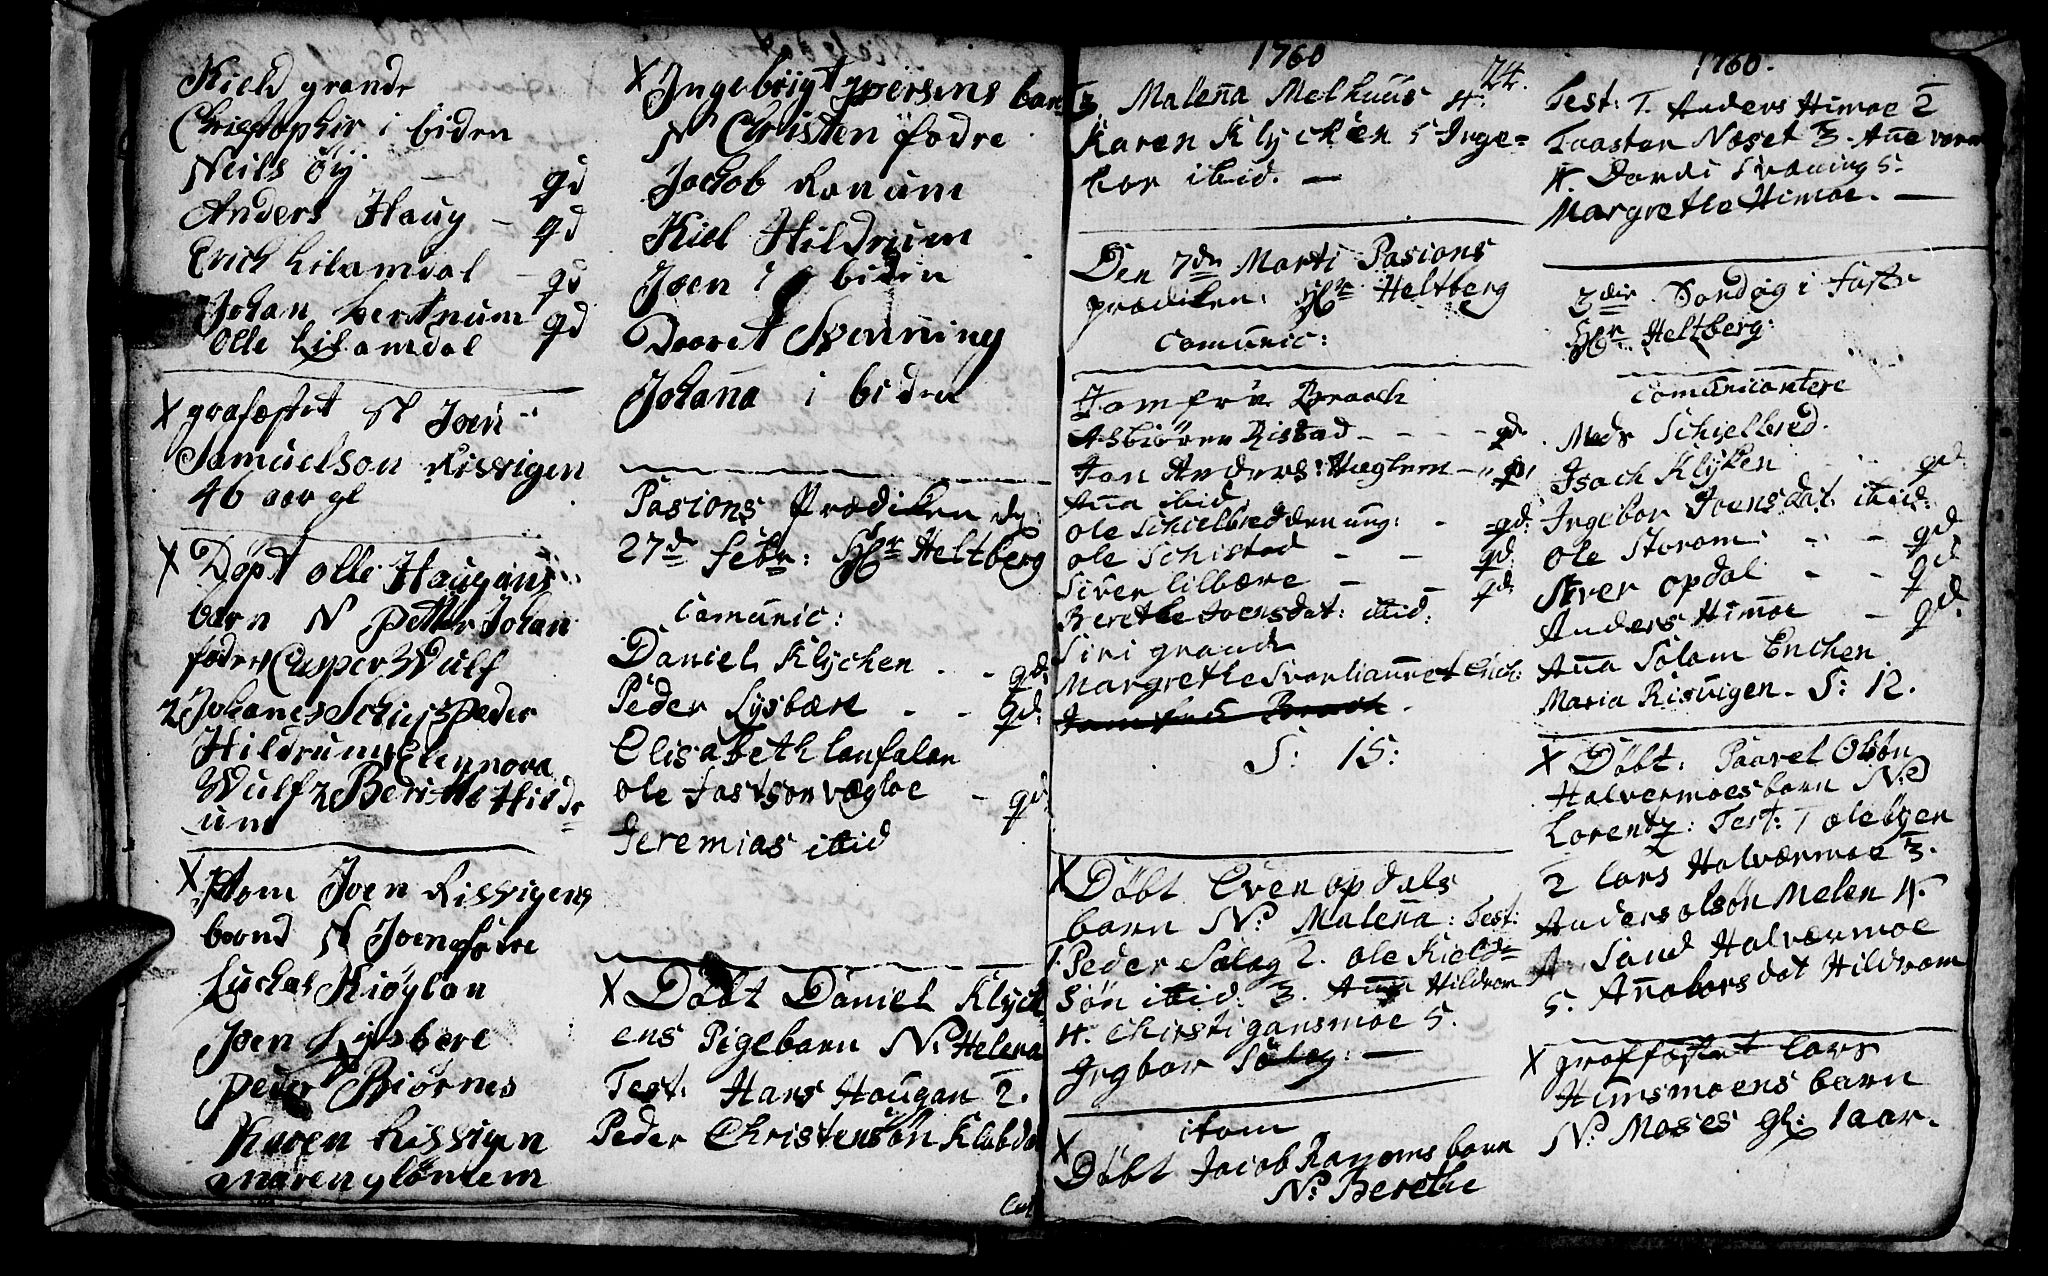 Kield grande
Christopher i biden
Neils Öÿ – qd
Anders Haug – qd
Erich Lilamdal – qd
Johan hertnum qd
Olle Lilamdal
X grafæstet N Joen
Samuelson Rissvigen
46 aar gl
X Döpt olle Haugans
barn N Petter Johan
fodre Casper Wulf
2 Johanes Schief 3 Peder
Hildrum 4 Elennora
Wulf 2 Berith Hildr=
um
X Itom Joen Rissvigens
barnd N Joen fodre
Luchas Kiöglan
Joen Lysbere
Peder Biörnes
Karen Rissvigen
maren glömem
X Ingebrigt Ipersens barn
N Christen fodre
Jachob Ranum
Kiel Hildrum
Joen i biden
Daaret Svenning
Johanna i biden
Pasions Prædiken dg:
27de febr: Hr Heltberg
Comunic:
Daniel Klychen - - qd:
Peder Lysbære - - qd:
Elisabeth lanfalan
ole Jastson vægloe - qd:
Jeremias ibid
X Döbt Daniel Klych=
ens Pigebarn N: Helena
Test: Hans Haugan 2.
Peder Christensön Klabda
1760
24.
3 Malenna Melhuus 4:
Karen Klychen 5 Inge=
bor ibid. —
Den 7de Marti Pasions
prædiken: Hr Heltberg
Comunic:
Jomfru Braach
Asbiörn Ristad - - - - qd.
Jon Anders: Hæglem - qd
Anna ibid
ole Schielbred den ung: - qd:
ole Schistad - - qd:
Siver lilbære - - qd:
Berethe Joensdat: ibid:
Siri grande
Margrethe
Jomfru Braach.
S: 15:
X Döbt Even opdals
barn N: Malenna: Test:
1. Peder Salag 2. ole Kield=
sön ibid: 3. Anna Hildrom
4. Chirsti gansmoe 5.
Ingbor Salag: —
itom
X Döbt Jacob Ranoms barn
N: Berethe
1760.
Test: 1. Anders Himoe 2
Taastar Næset 3. Anne
4. Dordi Sræning 5.
Margrethe Himoe. —
3die Söndag i Faste
Hr Heltberg:
Comunicantere
Mads Schielbred.
Isach Klyken - - qd:
Ingebor Joensdat: ibid:
ole Storom - - qd
Siver opdal - - qd
Anders Himoe - qd:
Anna Salom Enchen
Maria Risvigen. S: 12.
X Döbt: Paavel Olsön
Halvermoes barn N:
Lorentz: Test: 1 ole byen
2 Lars Halværmoe 3.
Anders olsön Melen 4.
A. Sand Halværmoe
5. Anna Larsdat Hildrom
X graffæstet Lars
Himsmoens barn
N: Moses gl: 1 aar.